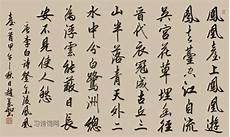 鳳凰臺上鳳凰遊
鳳去臺空江自流
吳宮花草埋幽徑晉
代衣冠成古丘三
山半落青天外二
水中分白鷺洲總
為浮雲能蔽日長
安不見使人愁
唐李白詩登金陵鳳凰臺
甲午秋日